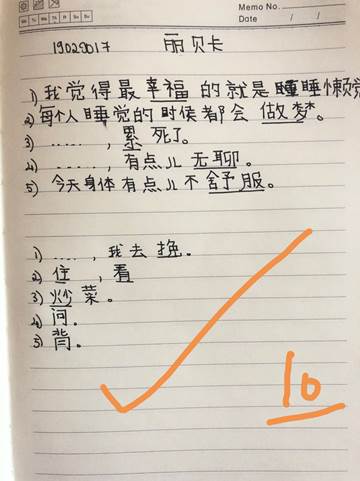 Memo No.
Mo Tu We Th Fr Sa Su
Date / /
19020017 丽贝卡
1) 我觉得最幸福的就是睡睡懒觉
2) 每个人睡觉的时候都会做梦。
3) ....., 累死了。
4) ....., 有点儿无聊。
5) 今天身体有点儿不舒服。
1) ....., 我去挽。
2) 住, 看
3) 炒菜。
4) 问。
5) 背。
10